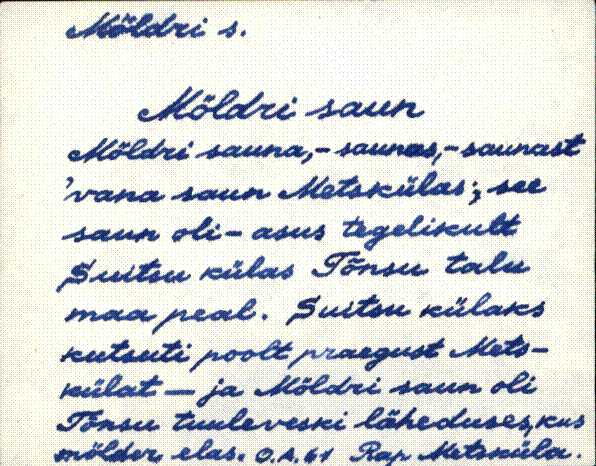 Möldri s.
Möldri saun
Möldri sauna,-saunas,-saunast
'vana saun Metskülas; see
saun oli-asus tegelikult
Suitsu külas Tõnsu talu
maa peal. Suitsu külaks
kutsuti poolt praegust Mets-
külat — ja Möldri saun oli
Tõnsu tuuleveski läheduses, kus
mölder elas. O.A.61 Rap Metsküla.